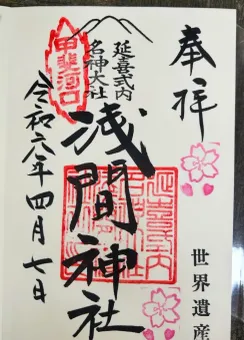 奉拝
世界遺産
延喜式内
名神大社
浅間神社
甲斐河口
令和六年四月七日
延喜式内